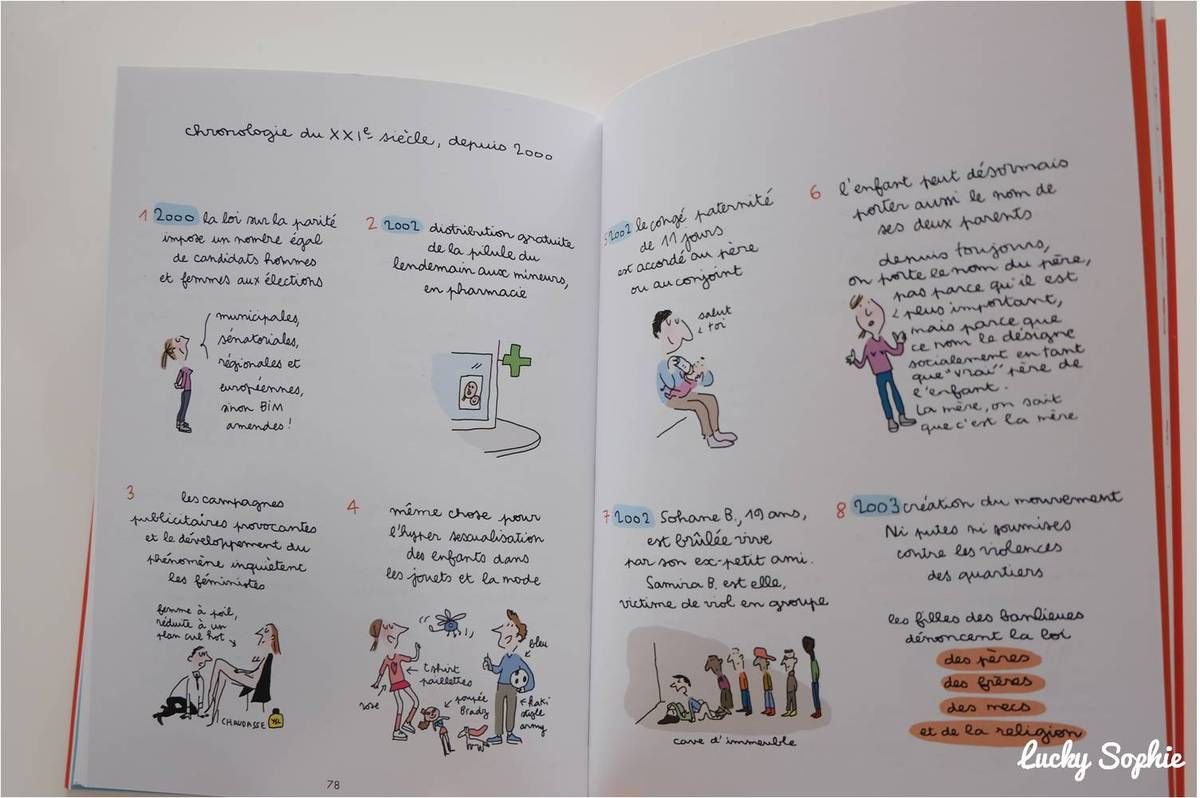 chronologie du XXIe siècle, depuis 2000
1 2000 la loi sur la parité
impose un nombre égal
de candidats hommes
et femmes aux élections
municipales,
sénatoriales,
régionales et
européennes,
sinon BIM
amendes !
2 2002 distribution gratuite
de la pilule du
lendemain aux mineurs,
en pharmacie
3 les campagnes
publicitaires provocantes
et le développement du
phénomène inquiètent
les féministes
femme à poil,
réduite à un
plan cul hot
CHAUDASSE
YSL
4 même chose pour
l'hyper sexualisation
des enfants dans
les jouets et la mode
bleu
t.shirt
paillettes
rose
poupée
Bradz
kaki
style
army
78
5 2002 le congé paternité
de 11 jours
est accordé au père
ou au conjoint
salut
toi
6 l'enfant peut désormais
porter aussi le nom de
ses deux parents
depuis toujours,
on porte le nom du père,
pas parce qu'il est
plus important,
mais parce que
ce nom le désigne
socialement en tant
que "vrai" père de
l'enfant.
La mère, on sait
que c'est la mère
7 2002 Sohane B., 19 ans,
est brûlée vive
par son ex-petit ami.
Samira B. est elle,
victime de viol en groupe
cave d'immeuble
8 2003 création du mouvement
Ni putes ni soumises
contre les violences
des quartiers
les filles des banlieues
dénoncent la loi
des pères
des frères
des mecs
et de la religion
Lucky Sophie